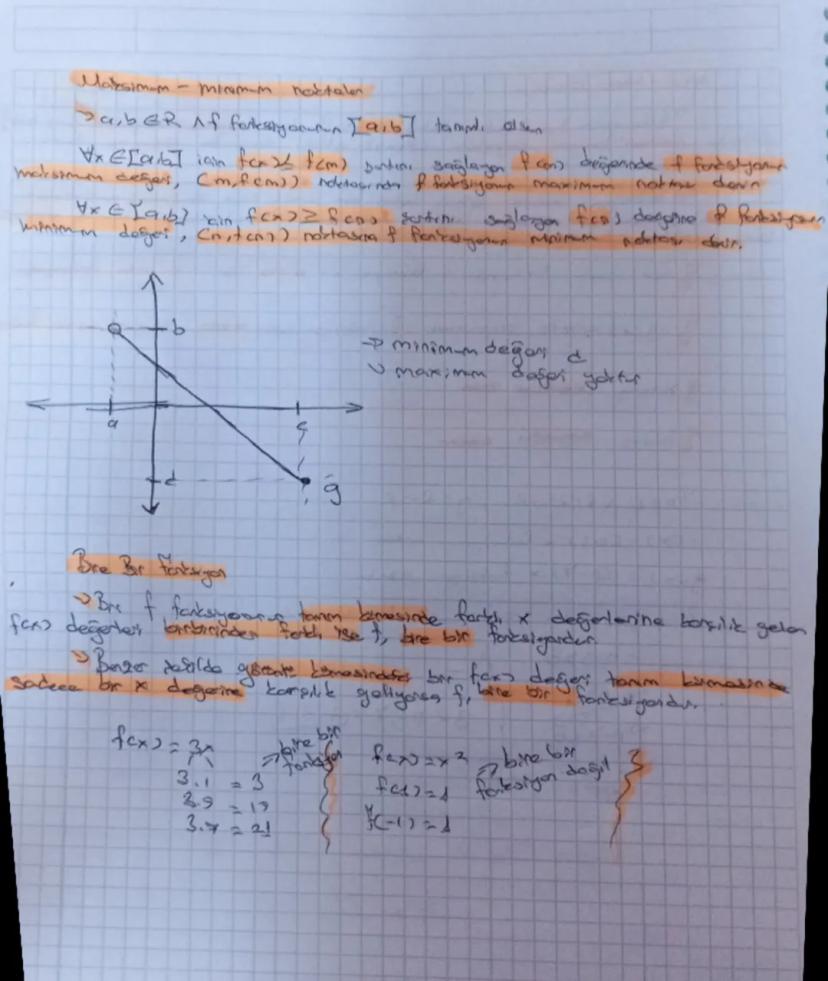 Maksimum - minimum noktaları
→ a,b ∈ R ∧ f fonksiyonunun [a,b] tanımlı olsun
∀x ∈ [a,b] için f(x) ≤ f(m) şartını sağlayan f(m) değerinde f fonksiyonun
maksimum değeri, (m, f(m)) noktasında f fonksiyonun maximum noktası denir
∀x ∈ [a,b] için f(x) ≥ f(n) şartını sağlayan f(n) değerine f fonksiyonun
minimum değeri, (n, f(n)) noktasına f fonksiyonun minimum noktası denir.
b
→ minimum değeri d
↘ maximum değeri yoktur
a c
d g
Bire Bir Fonksiyon
→ Bir f fonksiyonunun tanım kümesinde farklı x değerlerine karşılık gelen
f(x) değerleri birbirinden farklı ise f, bire bir fonksiyondur.
→ Benzer şekilde görüntü kümesindeki bir f(x) değeri tanım kümesinde
sadece bir x değerine karşılık geliyorsa f, bire bir fonksiyondur.
f(x) = 3x → bire bir fonksiyon
3.1 = 3
3.7 = 21
f(x) = x² → bire bir fonksiyon değil
f(1) = 1
f(-1) = 1